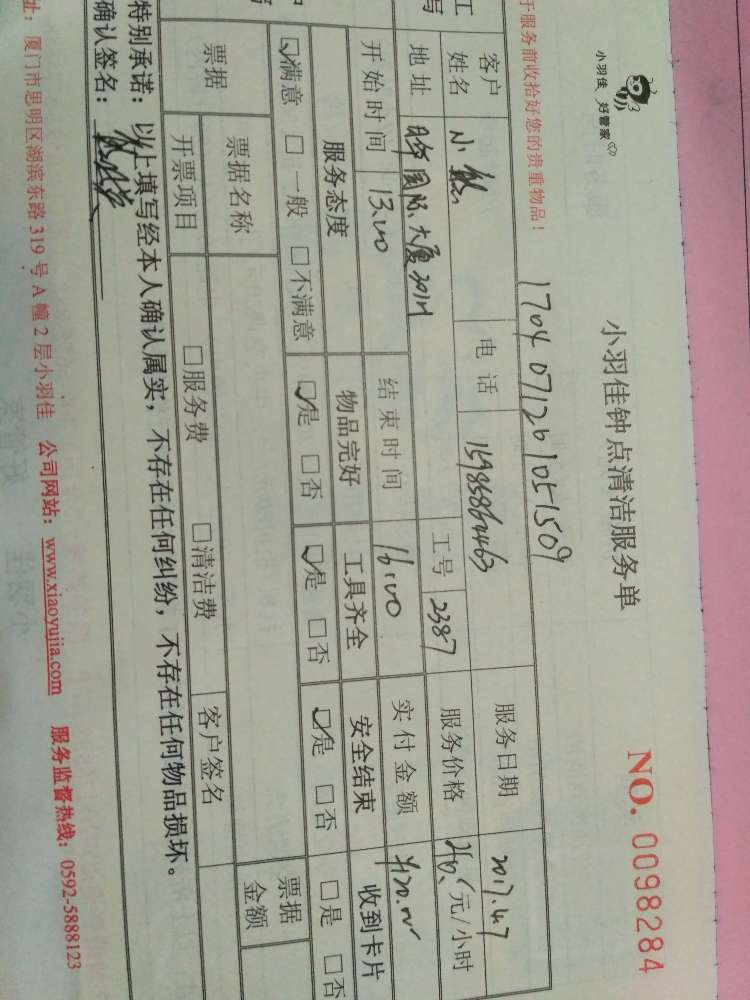 小羽佳 好管家
小羽佳钟点清洁服务单
NO. 0098284
于服务前收拾好您的贵重物品！
1704071261051509
客户姓名 小熊 电话 服务日期 2017.4.7
地址 国际大厦 工号 2387 服务价格 元/小时
开始时间 13:00 结束时间 16:00 实付金额 ¥120.00
服务态度 物品完好 工具齐全 安全结束 收到卡片
☑满意 □一般 □不满意 ☑是 □否 ☑是 □否 ☑是 □否 □是 □否
票据 票据名称 票据金额
开票项目 □服务费 □清洁费 客户签名
特别承诺：以上填写经本人确认属实，不存在任何纠纷，不存在任何物品损坏。
确认签名：
址：厦门市思明区湖滨东路319号A幢2层小羽佳 公司网站：www.xiaoyujia.com 服务监督热线：0592-5888123